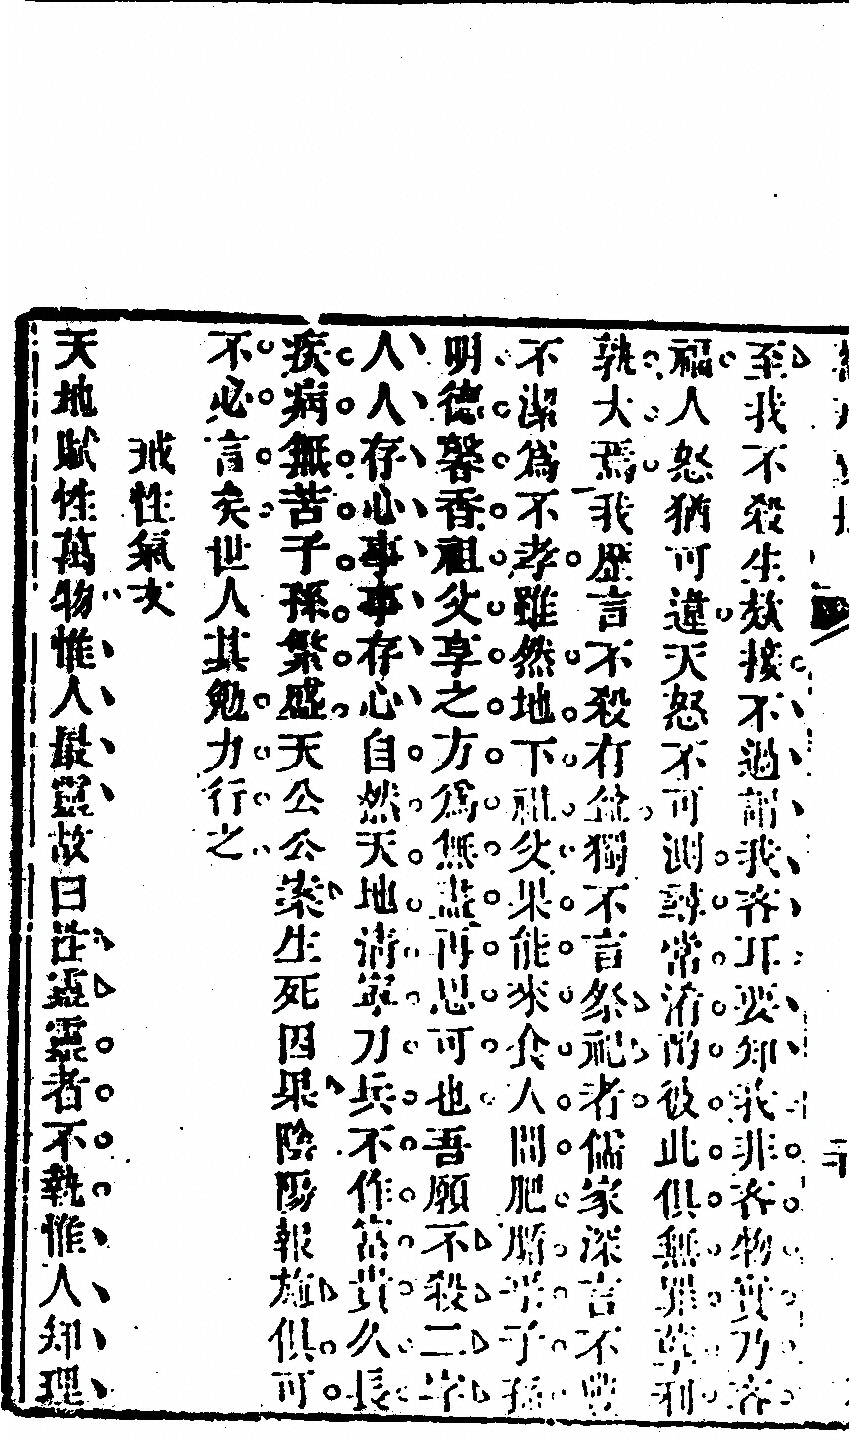 至我不殺生妓接不過謂我吝耳要知我非吝物實乃吝
福人怒猶可違天怒不可測尋常淆酌彼此俱無罪孽利
孰大焉我歷言不殺有益獨不言祭祀者儒家深言不豐
不潔爲不孝雖然地下祖父果能來食人間肥腯乎子孫
明德馨香祖父享之方爲無盡再思可也吾願不殺二字
人人存心事事存心自然天地清寧刀兵不作富貴久長
疾病無苦子孫繁盛天公公案生死因果陰陽報施俱可
不必言矣世人其勉力行之
戒性氣文
天地賦性萬物惟人最靈故曰性靈靈者不執惟人知理